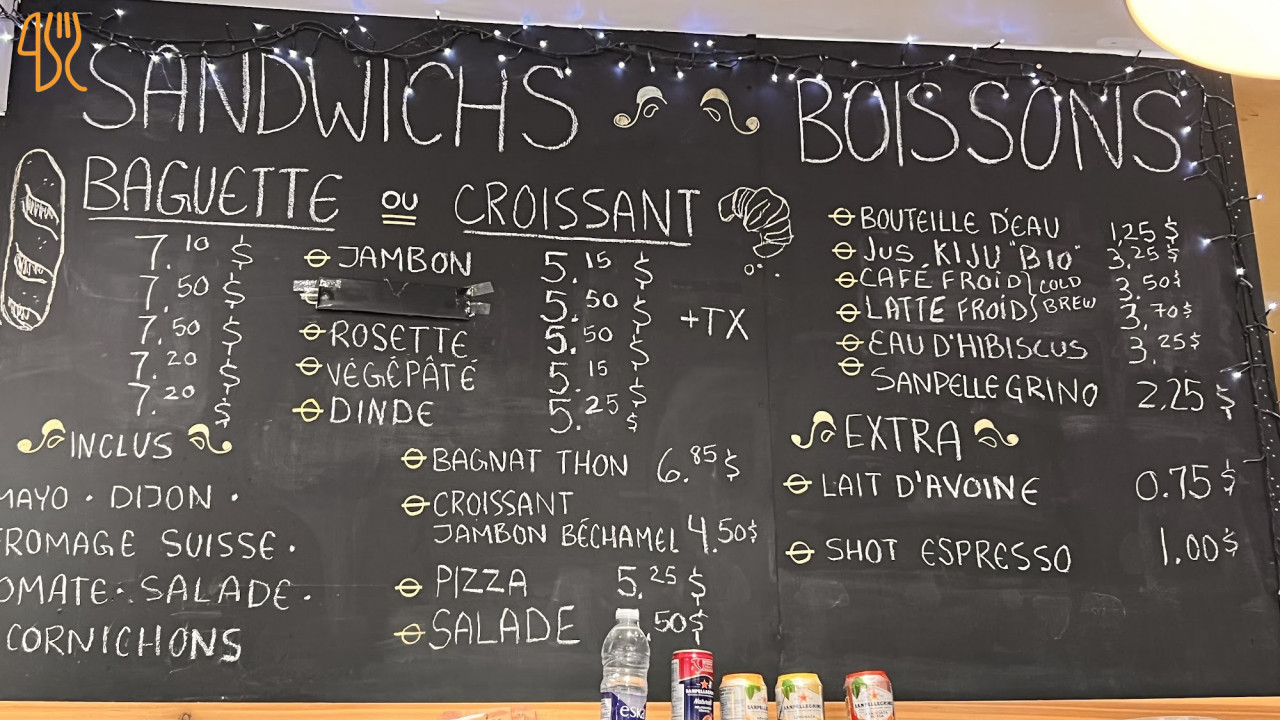 SANDWICHS
BAGUETTE OU CROISSANT
7.10 $ JAMBON 5.15 $
7.50 $ 5.50 $
7.50 $ ROSETTE 5.50 $
7.20 $ VÉGÉPÂTÉ 5.15 $
7.20 $ DINDE 5.25 $
+TX
INCLUS
MAYO · DIJON ·
FROMAGE SUISSE ·
OMATE · SALADE ·
CORNICHONS
BAGNAT THON 6.85 $
CROISSANT
JAMBON BÉCHAMEL 4.50$
PIZZA 5.25 $
SALADE .50$
BOISSONS
BOUTEILLE D'EAU 1,25 $
JUS KIJU "BIO" 3.25 $
CAFÉ FROID COLD 3.50$
LATTE FROID BREW 3.70$
EAU D'HIBISCUS 3.25$
SANPELLEGRINO 2.25 $
EXTRA
LAIT D'AVOINE 0.75 $
SHOT ESPRESSO 1.00$
eska
SANPELLEGRINO
SANPELLEGRINO
SANPELLEGRINO
SANPELLEGRINO